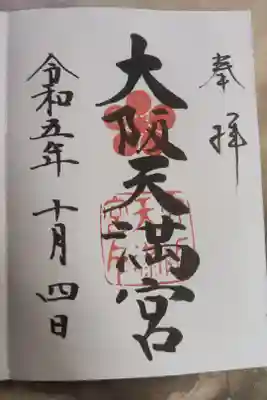 奉拝
大阪天満宮
令和五年 十月 四日